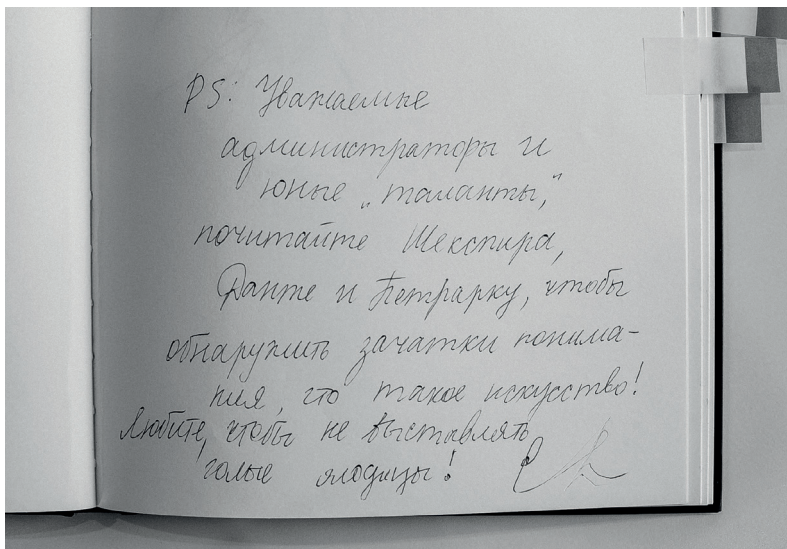 PS: Уважаемые
администраторы и
юные „таланты,"
почитайте Шекспира,
Данте и Петрарку, чтобы
обнаружить зачатки понима-
ния, что такое искусство!
Любите, чтобы не выставлять
голые ягодицы!